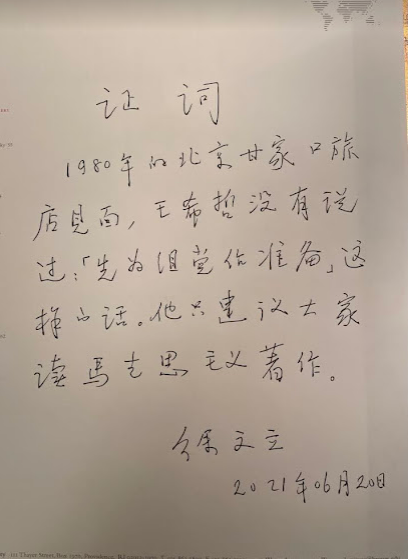 证 词
1980年的北京甘家口旅
店见面，王希哲没有说
过：「先为组党作准备」这
样的话。他只建议大家
读马克思主义著作。
徐文立
2021年06月20日